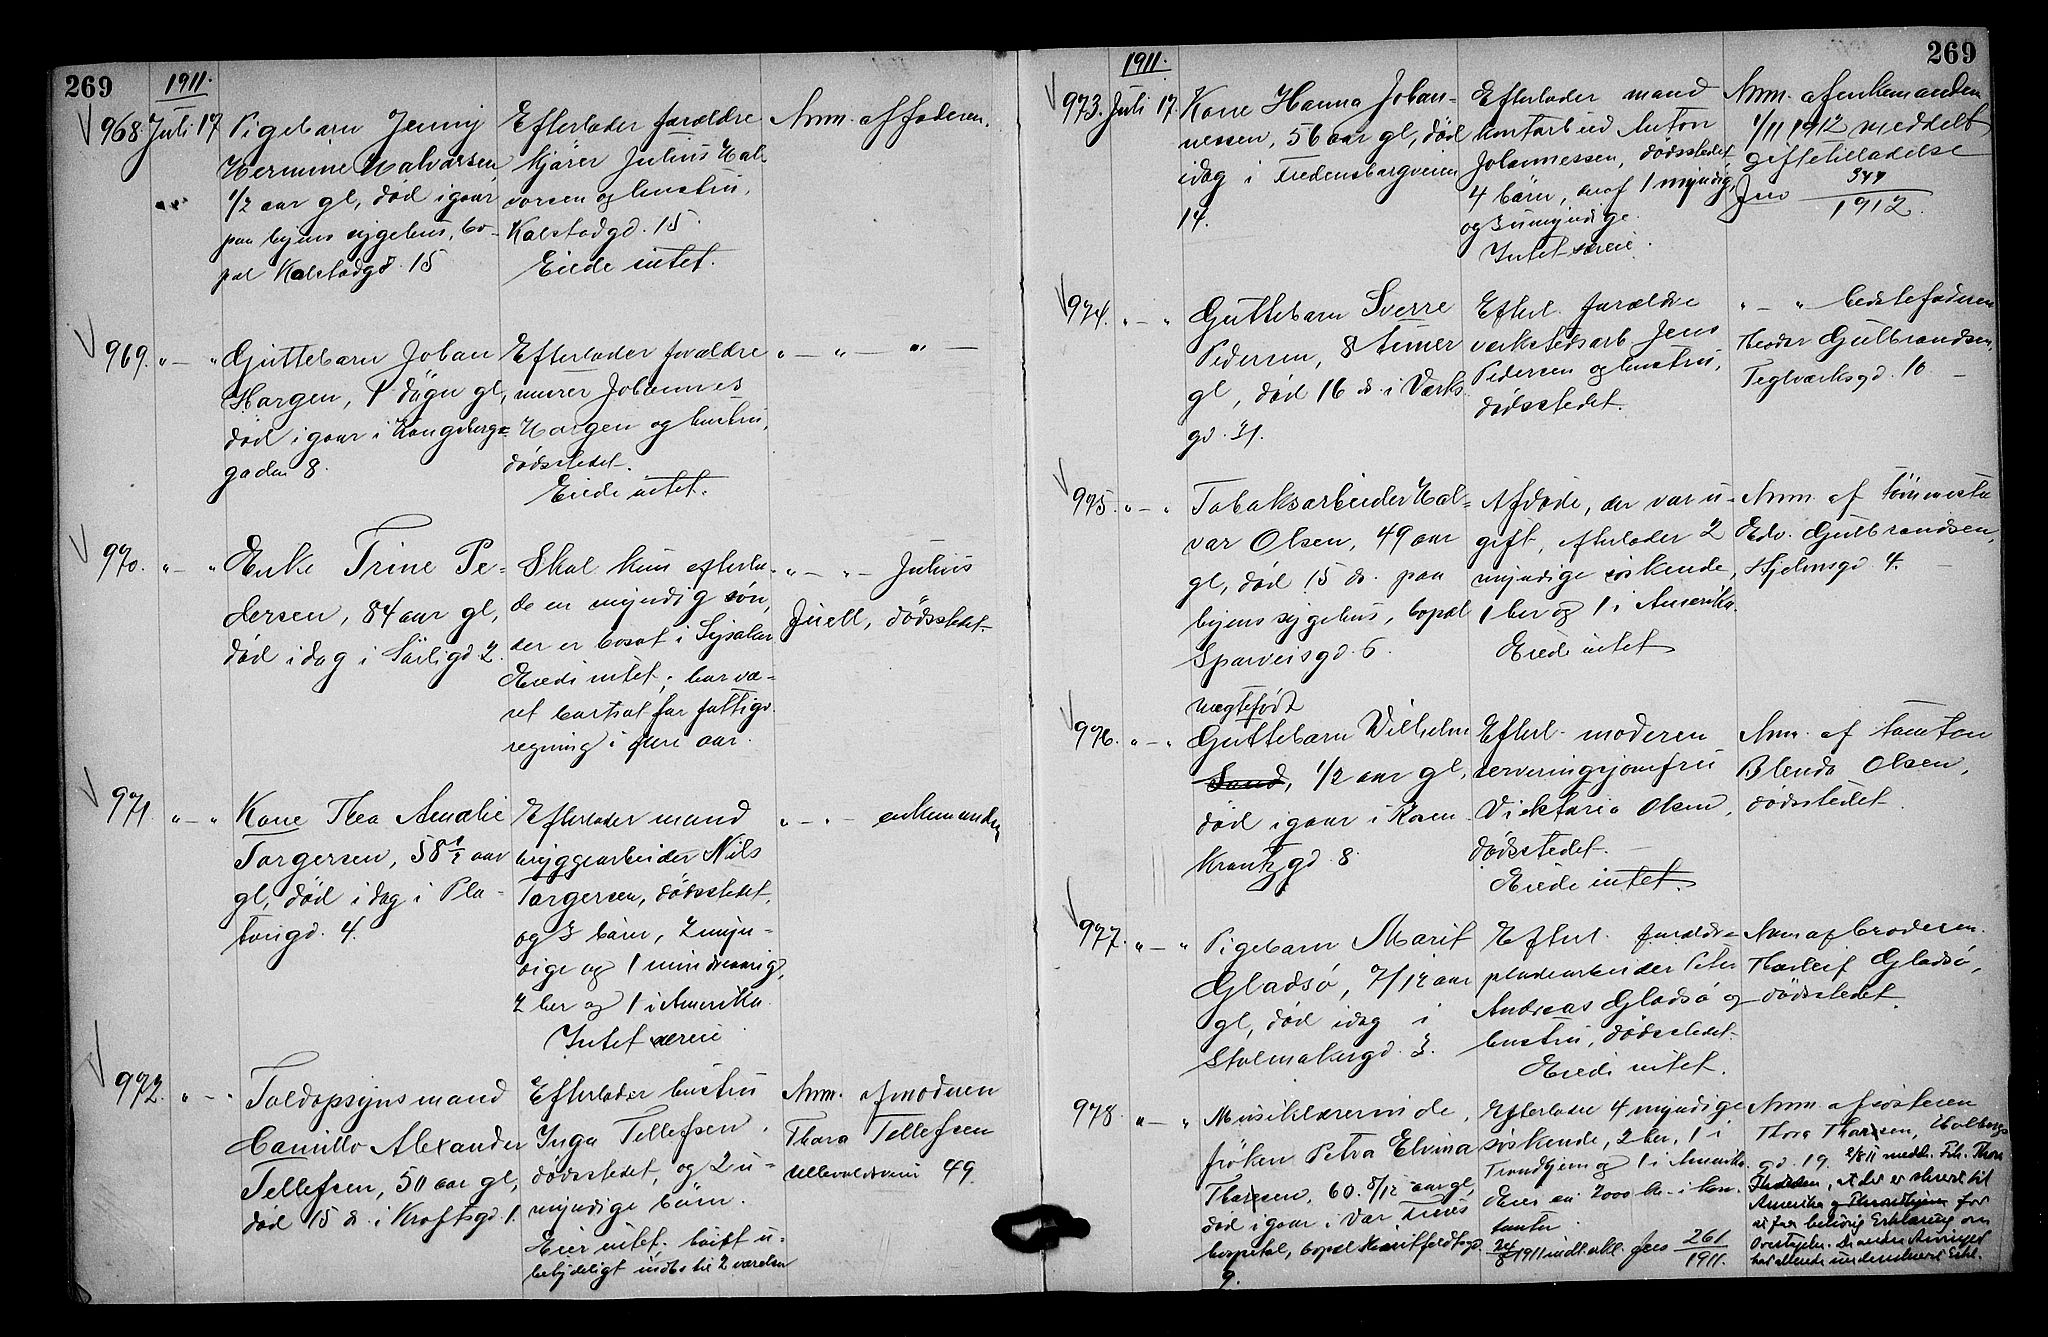 269
1911.
968. Juli 17
Pigebarn Jenny
Hermine Halvorsen,
1/2 aar gl, død igaar
paa byens sygehus, bo-
pæl Kalstadgd. 15
Efterlader forældre
kjører Julius Hal-
vorsen og hustru,
Kalstadgd. 15
Eiede intet.
Anm. af faderen.
969. " — "
Guttebarn Johan
Horgen, 1 døgn gl,
død igaar i Kongsberg-
gaden 8.
Efterlader forældre
murer Johannes
Horgen og hustru,
dødsstedet.
Eiede intet.
" — " — " —
970. " — "
Enke Trine Pe-
dersen, 84 aar gl,
død idag i Sørligd 2.
Skal kun efterla-
de en myndig søn,
der er bosat i
Eiede intet; har væ-
ret bortsat for fattigv.
regning i flere aar.
" — " — Julius
Juell, dødsstedet.
971. " — "
Kone Thea Amalie
Torgersen, 58 1/2 aar
gl, død idag i Pla-
tougd. 4.
Efterlader mand
bryggearbeider Nils
Torgersen, dødsstedet,
og 3 børn, 2 myn-
dige og 1 mindreaarig,
2 her og 1 i Amerika.
Intet særeie
" — " — enkemanden
972. " — "
Toldopsynsmand
Camillo Alexander
Tellefsen, 50 aar gl,
død 15 ds. i Kroftsgd 1.
Efterlader hustru
Inga Tellefsen,
dødsstedet, og 2 u-
myndige børn.
Eier intet. høist u-
betydeligt indbo til 2 værelser
Anm. af moderen
Thora Tellefsen
Ullevoldsveien 49.
269
1911.
973. Juli 17.
Kone Hanna Johan-
nessen, 56 aar gl, død
idag i Fredensborgveien
14.
Efterlader mand
kontorbud Anton
Johannessen, dødsstedet,
4 børn, deraf 1 myndig,
og 3 umyndige.
Intet særeie.
Anm. af enkemanden
1/11 1912 meddelt
giftetilladelse
Jno 344
1912.
974. " — "
Guttebarn Sverre
Pedersen, 8 timer
gl, død 16 ds. i Værks-
gd. 31.
Efterl. forældre
værkstedsarb Jens
Pedersen og hustru,
dødsstedet.
" — " bedstefaderen
Theodor Gulbrandsen,
Teglværksgd. 10 —
975. " — "
Tobaksarbeider Hal-
var Olsen, 49 aar
gl, død 15 ds. paa
byens sygehus, bopæl
Sparveisgd. 6.
Afdøde, der var u-
gift, efterlader 2
myndige søskende,
1 her og 1 i Amerika.
Eiede intet
Anm. af tømmerm
Edv. Gulbrandsen,
Hjelmsgd 4. —
976. " — "
uægtefødt
Guttebarn Vilhelm
Sand, 1/2 aar gl,
død igaar i Rosen-
krantzgd. 8.
Efterl. moderen
serveringsjomfru
Vicktoria Olsen,
dødsstedet. —
Eiede intet.
Anm. af tanten
Blenda Olsen,
dødsstedet.
977. " — "
Pigebarn Marit
Gladsø, 7/12 aar
gl, død idag i
Stolmakergd. 3.
Efterl. forældre
pladearbeider Peter
Andreas Gladsø og
hustru, dødsstedet.
Eiede intet.
Anm af broderen
Thorleif Gladsø,
dødsstedet.
978. " — "
Musiklærerinde,
frøken Petra Elvina
Thoresen, 60 8/12 aar gl,
død igaar i Vor Frues
hospital, bopæl Huitfeldtsgd.
9.
Efterlader 4 myndige
søskende, 2 her, 1 i
Trondhjem og 1 i Amerika.
Eier ca. 2000 kr. i kon-
tanter.
24/8 1911 indt. erkl. Jno 261
1911.
Anm af søsteren
Thora Thoresen, Holbergs
gd. 19. 2/8 11 medd. Frk. Thora
Thoresen, at der er skrevet til
Amerika og Throndhjem for
at faa behørig Erklæring om
Overtagelse. De andre Arvinger
har allerede underskrevet Erkl.